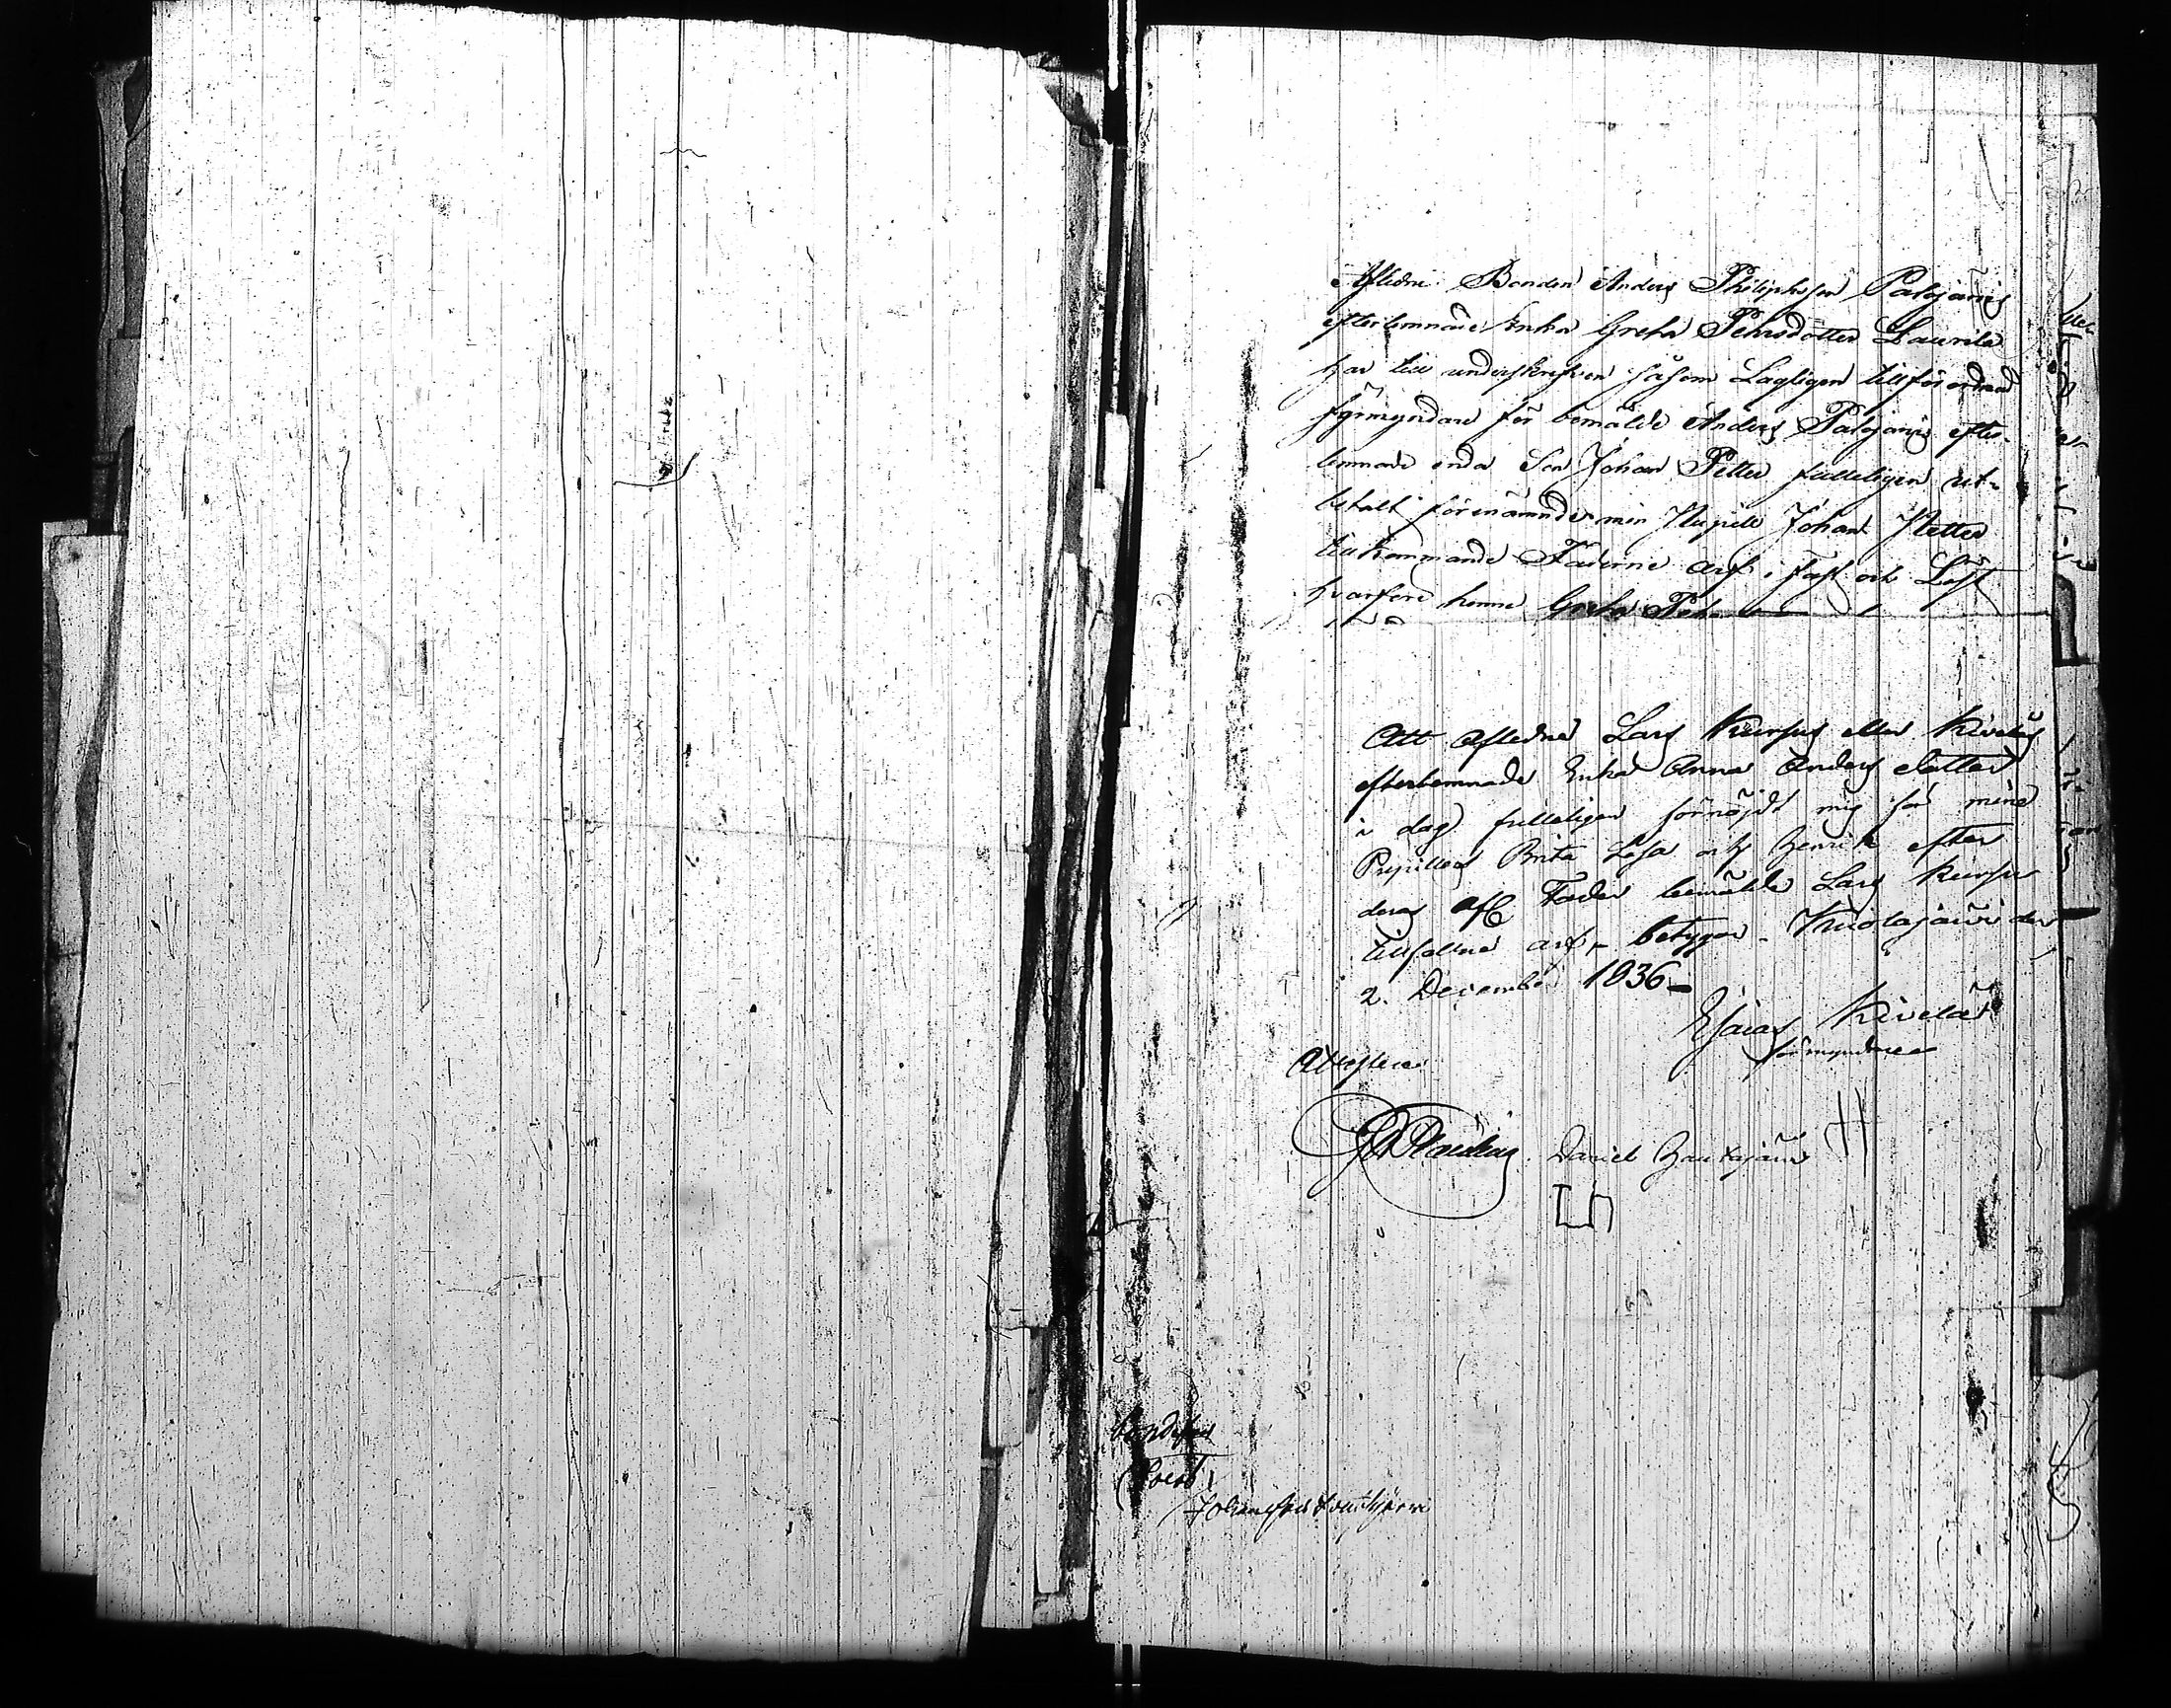 Afledne Bonden Anders Philiphsson Palojärvis
efterlemnade Enka Greta Pehrsdotter Laurila
har till underskrefven såsom Lagligen tillförordnad
förmyndare för bemälde Anders Palojärvis efter-
lemnade enda Son Johan Petter fulleligen ut-
betalt förenämnde min Pupill Johan Petter
tillkommande Fäderne arf i fast och Löst
hvarföre henne Greta
Att Afledne Lars Kürsus eller Kiveläs
efterlemnade Enka Anna Anders dotter
i dag fulleligen förnöjdt mig för mina
Pupiller Brita Lisa och Henrik efter
deras afl Fader bemälde Lars Kürsus
tillfallne arf, betygar. Kuolajärvi den
2. December 1836
Esaias Kivelä
förmyndare
Attestera
Daniel Hautajärvi